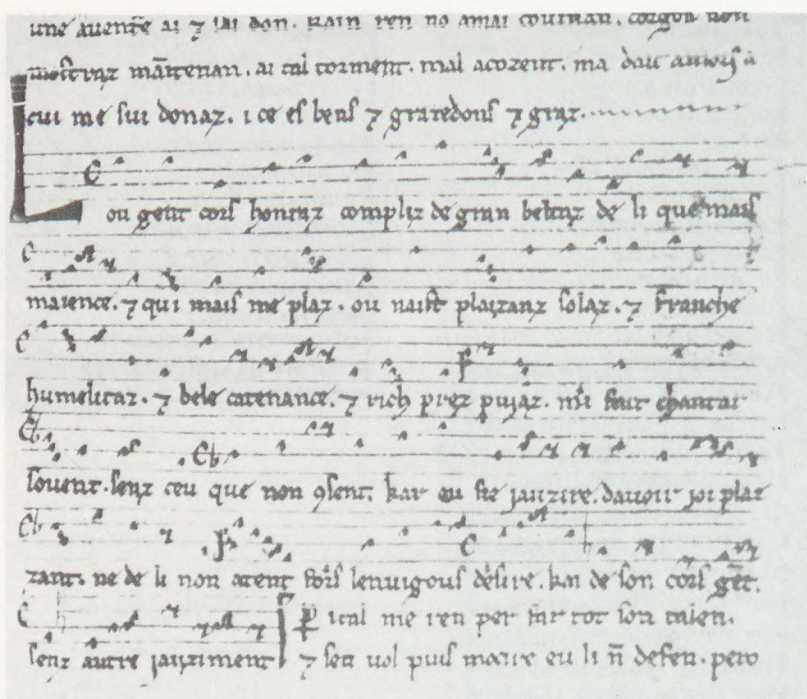 une auente ai ⁊ iai don. kain ren no amai
mantenan. ai tal torment. mal acozent. ma dait amors a
cui me sui donaz. i ce es bens ⁊ gueredons ⁊ graz.
Lou gent cors honraz compliz de gran beltaz de li que mais
maience. ⁊ qui mais me plaz. ou naist plaizanz solaz. ⁊ franche
humelitaz. ⁊ bele catenance. ⁊ rich prez puiaz. mi fait chantar
souent. senz ceu que non ꝯsent. kar ou fie iauzire. dauoir ioi plai
zant. ne de li non atent fors lenuigous desire. kai de son cors gēt.
senz autre iauziment P ital me ren per far tot son talen.
⁊ sen uol puis morir eu li ñ defen. pero